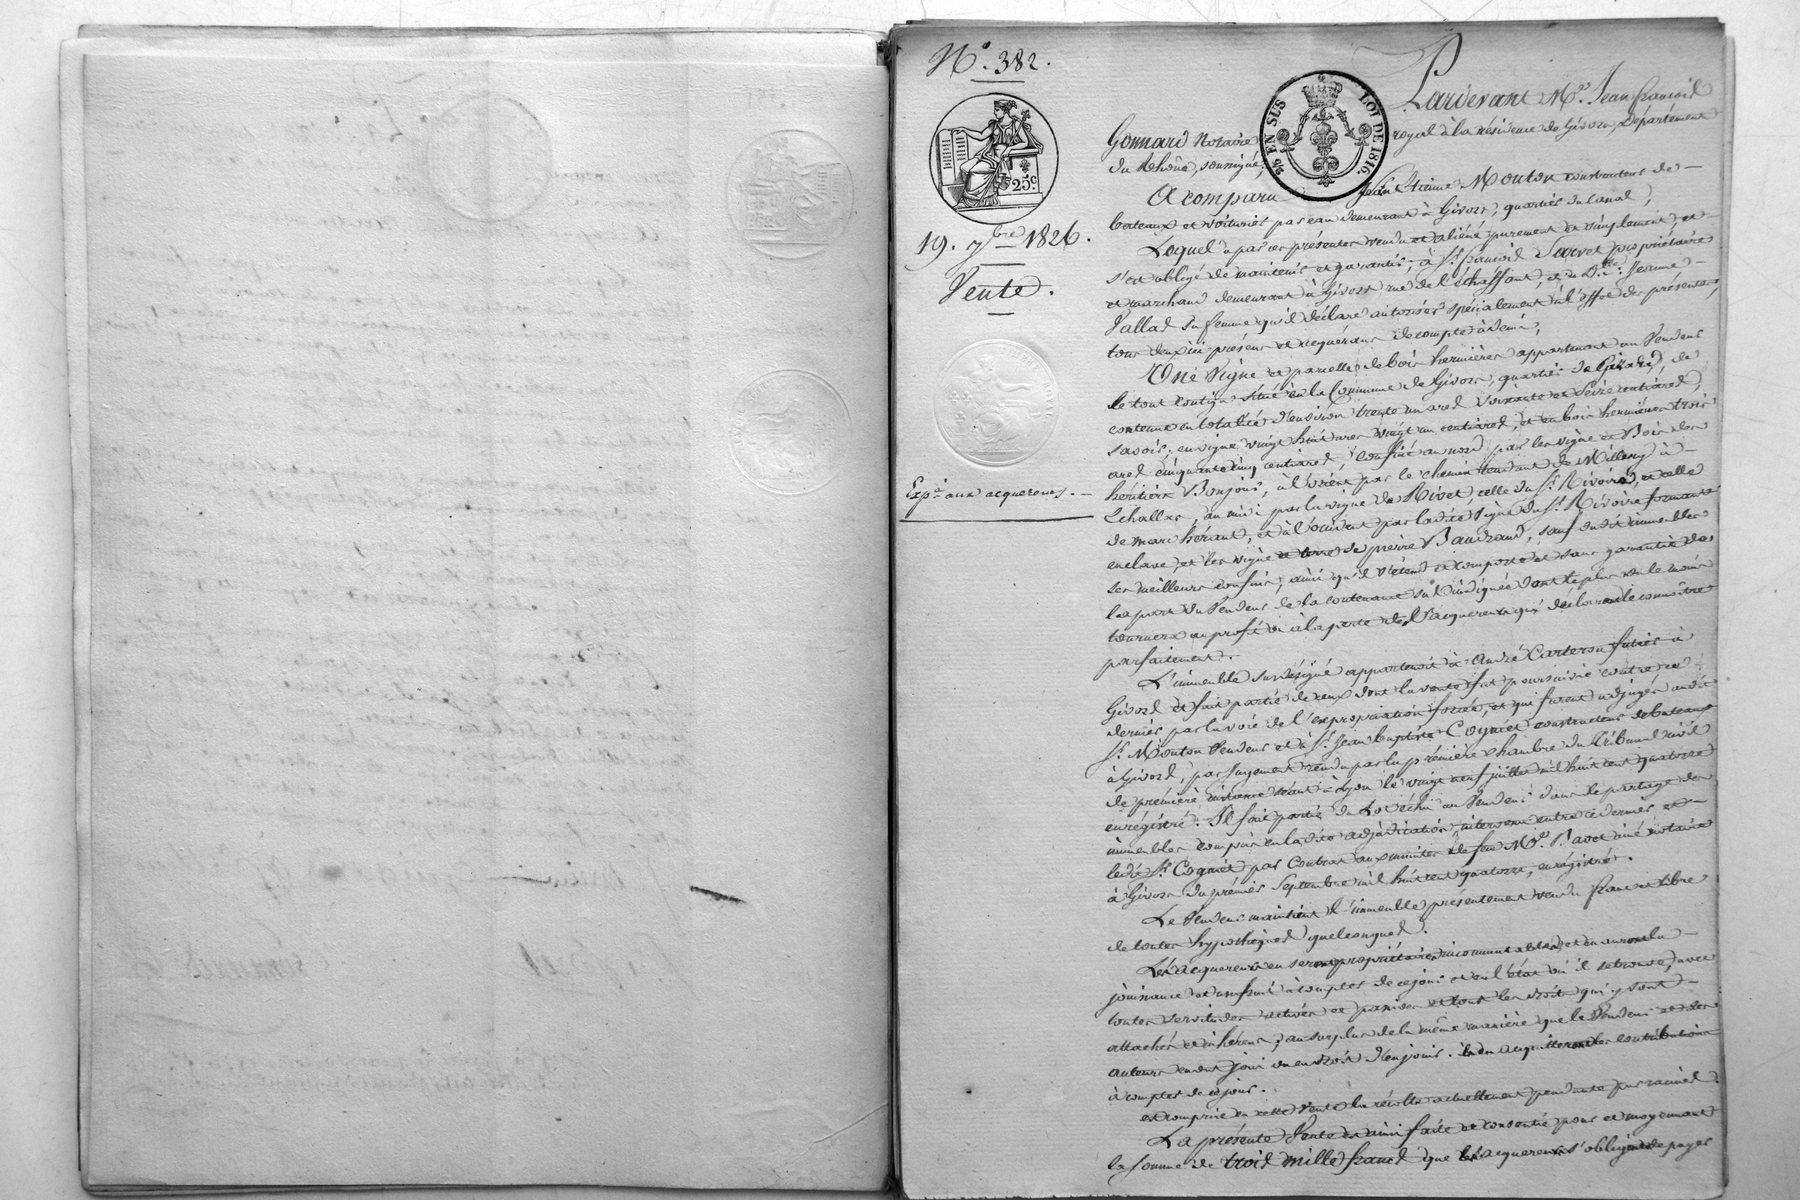 N.o 382.
25c
19. 7bre 1826.
Vente.
Expn aux acquereurs.
2/5 EN SUS LOI DE 1816.
Pardevant Me. Jean françois
Gonnard Notaire royal à la résidence de Givors, Département
du Rhône, soussigné,
A Comparu Jean Etienne Mouton constructeur de
bateaux et voiturier par eau demeurant à Givors, quartier du Canal,
Lequel a par ces présentes vendu et aliéné purement et simplement, et
s'est obligé de maintenir et garantir, à Sr. françois propriétaire
et marchand demeurant à Givors rue de l'échaffant, et à De. Jeanne
Vallas sa femme qu'il déclare autoriser spécialement à l'effet des présentes,
tous deux ici présens et acquérans de compte à demi,
Une Vigne et parcelle de bois hermières appartenant au Vendeur
le tout contigu situé en la Commune de Givors, quartier de de
contenue en totalité d'environ trente un ares soixante et seize centiares,
savoir, en vigne vingt huit ares vingt un centiares, et en bois hermières trois
ares cinquante cinq centiares, confiné au nord par les vigne et Bois des
héritiers Bonjour, à l'orient par le chemin tendant de Millery à
Echallas, au midi par la vigne de Rivet, celle du Sr. Rivoire, et celle
de marc hérant, et à l'occident par ladite Vigne du Sr. Rivoire formant
enclave, et les vigne et terre de pierre Baudrand, sauf dudit immeuble
ses meilleurs confins, ainsi qu'il s'étend et comporte et sans garantie de
la part du Vendeur de la contenance sus indiquée dont le plus ou le moins
tournera au profit ou à la perte des acquereurs qui déclarent le connaître
parfaitement.
L'immeuble sus désigné appartenait à André Carteron à
Givors et fait partie de ceux dont la vente fut poursuivie contre ce
dernier par la voie de l'expropriation forcée, et qui furent adjugés audit
Sr. Mouton Vendeur et à Sr. Jean baptiste Cognet constructeur de bateaux
à Givors, par Jugement rendu par la première chambre du Tribunal civil
de première instance séant à Lyon le vingt neuf juillet mil huit cent quatorze
enregistré. Il fait partie du Lot échu au Vendeur dans le partage des
immeubles compris en ladite adjudication, intervenu entre ce dernier et
ledit Sr. Cognet par Contrat aux minutes de feu Me. Bavet ainé notaire
à Givors du premier Septembre mil huit cent quatorze, enregistré.
Le Vendeur maintient l'immeuble présentement vendu franc et libre
de toutes hypothèques quelconques.
Les acquereurs en seront propriétaires incommutables et en auront la
jouissance et usufruit à compter de ce jour et en l'état où il se trouve, avec
toutes servitudes actives et passives et tous les droits qui y sont
attachés et inhérens, au surplus de la même manière que le Vendeur et ses
auteurs en ont joui ou eu droit d'en jouir. Ils en acquitteront les contributions
à compter de ce jour.
est comprise en cette vente la récolte actuellement pendante par racines.
La présente Vente est ainsi faite et consentie pour et moyennant
la somme de trois mille francs que les acquereurs s'obligent de payer